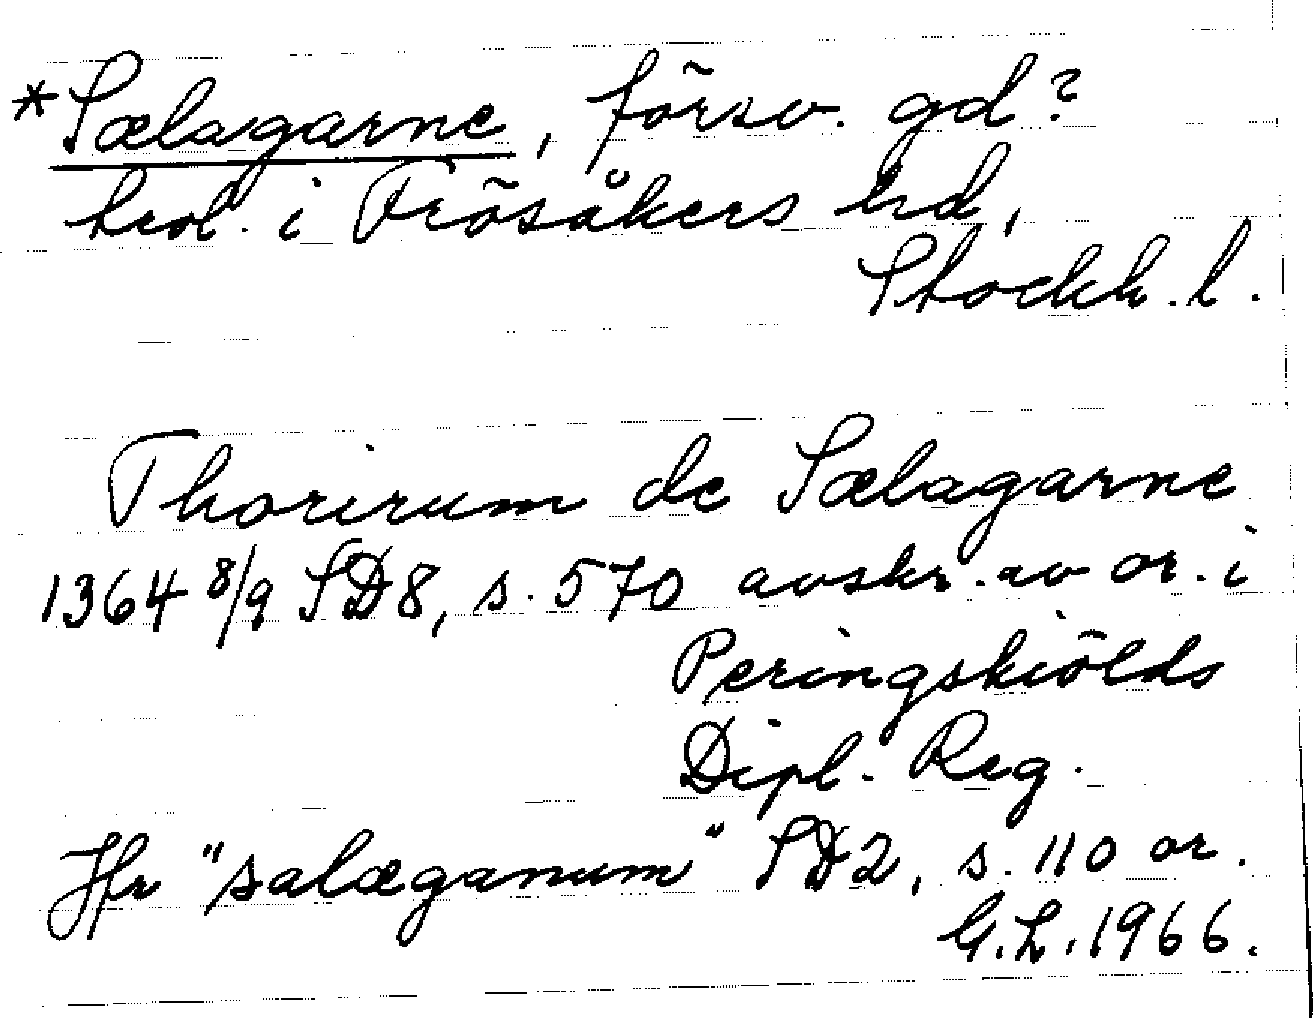 *Sælagarne, försv. gd?
trol. i Frösåkers hd,
Stockh. l.
Thorirum de Sælagarne
1364 8/9 SD8, s. 570 avskr. av or. i
Peringskiölds
Dipl. Reg.
Jfr "salæganum" SD2, s. 110 or.
G.L. 1966.